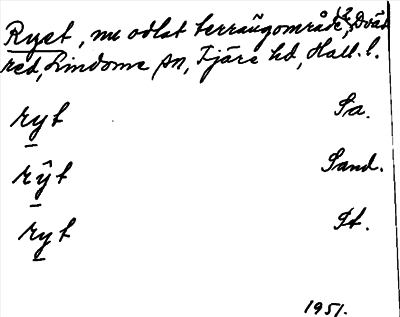 Ryet, nu odlat terrängområde, Dvät
red, Lindome sn, Fjäre hd, Hall. l.
ryt Sa.
rŷt Sand.
ryt St.
1951.